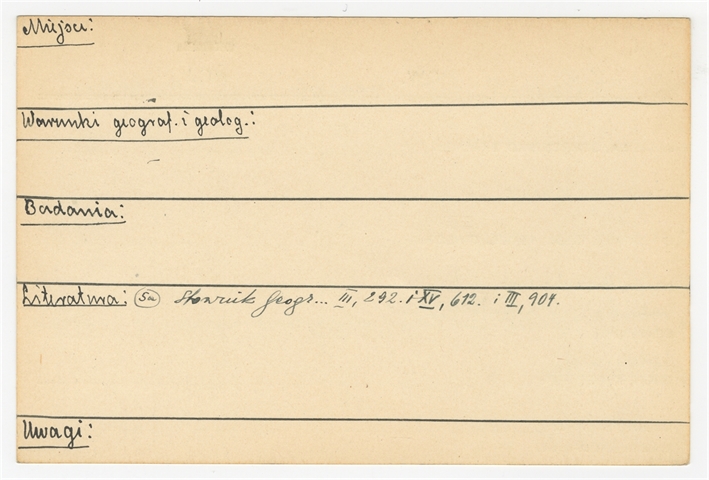 Miejsce:
Warunki geograf. i geolog.:
Badania:
Literatura: Słownik Geogr... III, 292. i XV, 612. i III, 904.
Uwagi: